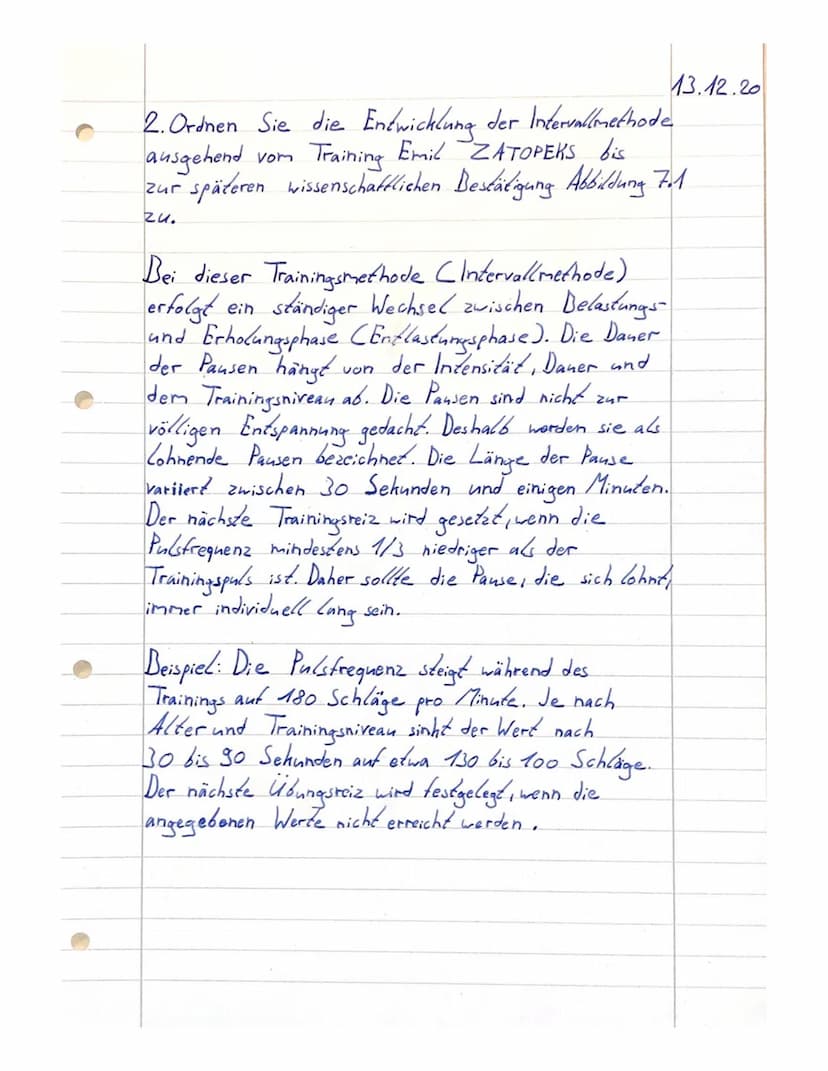 13.12.20
2. Ordnen Sie die Entwicklung der Intervallmethode
ausgehend vom Training Emil ZATOPEKS bis
zur späteren wissenschaftlichen Bestätigung Abbildung 7.1
zu.
Bei dieser Trainingsmethode (Intervallmethode)
erfolgt ein ständiger Wechsel zwischen Belastungs-
und Erholungsphase (Entlastungsphase). Die Dauer
der Pausen hängt von der Intensität, Dauer und
dem Trainingsniveau ab. Die Pausen sind nicht zur
völligen Entspannung gedacht. Deshalb werden sie als
lohnende Pausen bezeichnet. Die Länge der Pause
variiert zwischen 30 Sekunden und einigen Minuten.
Der nächste Trainingsreiz wird gesetzt, wenn die
Pulsfrequenz mindestens 1/3 niedriger als der
Trainingspuls ist. Daher sollte die Pause, die sich lohnt,
immer individuell lang sein.
Beispiel: Die Pulsfrequenz steigt während des
Trainings auf 180 Schläge pro Minute. Je nach
Alter und Trainingsniveau sinkt der Wert nach
30 bis 90 Sekunden auf etwa 130 bis 100 Schläge.
Der nächste Übungsreiz wird festgelegt, wenn die
angegebenen Werte nicht erreicht werden.